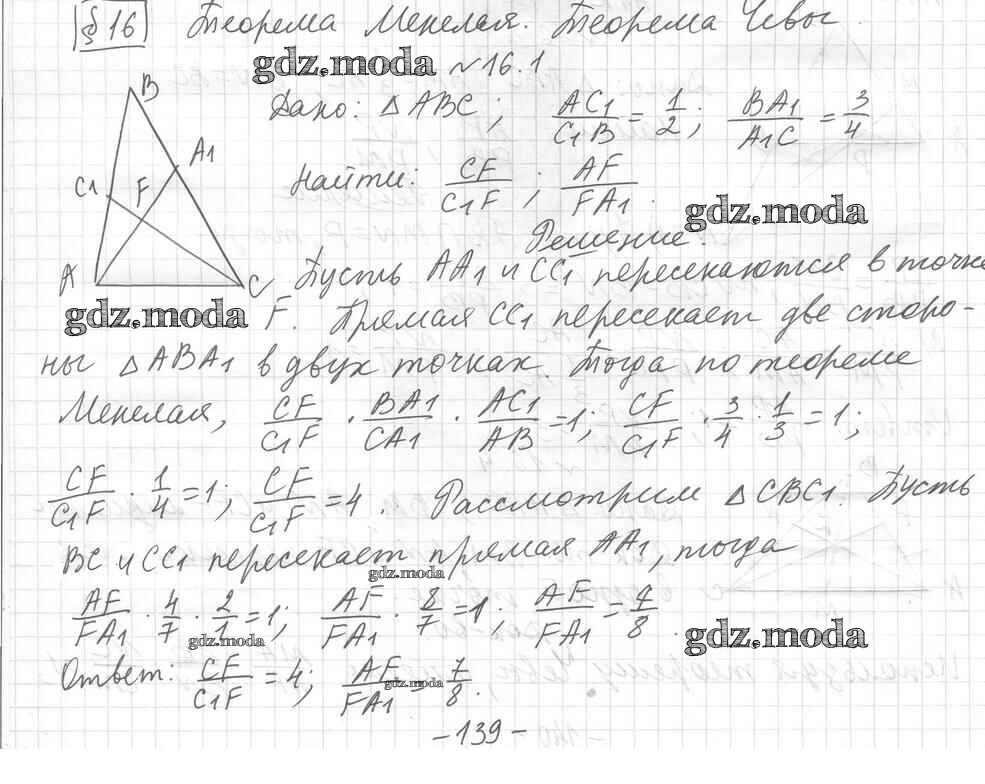 § 16 Теорема Менелая. Теорема Чевы.
gdz.moda №16.1
B
Дано: △ABC; AC1/C1B = 1/2; BA1/A1C = 3/4
A1
C1 F
Найти: CF/C1F; AF/FA1.
gdz.moda
Решение.
A C Пусть AA1 и CC1 пересекаются в точке
gdz.moda F. Прямая CC1 пересекает две сторо-
ны △ABA1 в двух точках. Тогда по теореме
Менелая, CF/C1F · BA1/CA1 · AC1/AB = 1; CF/C1F · 3/4 · 1/3 = 1;
CF/C1F · 1/4 = 1; CF/C1F = 4. Рассмотрим △CBC1. Пусть
BC и CC1 пересекает прямая AA1, тогда
gdz.moda
AF/FA1 · 4/7 · 2/1 = 1; AF/FA1 · 8/7 = 1; AF/FA1 = 7/8.
gdz.moda
gdz.moda
Ответ: CF/C1F = 4; AF/FA1 = 7/8.
gdz.moda
-139-